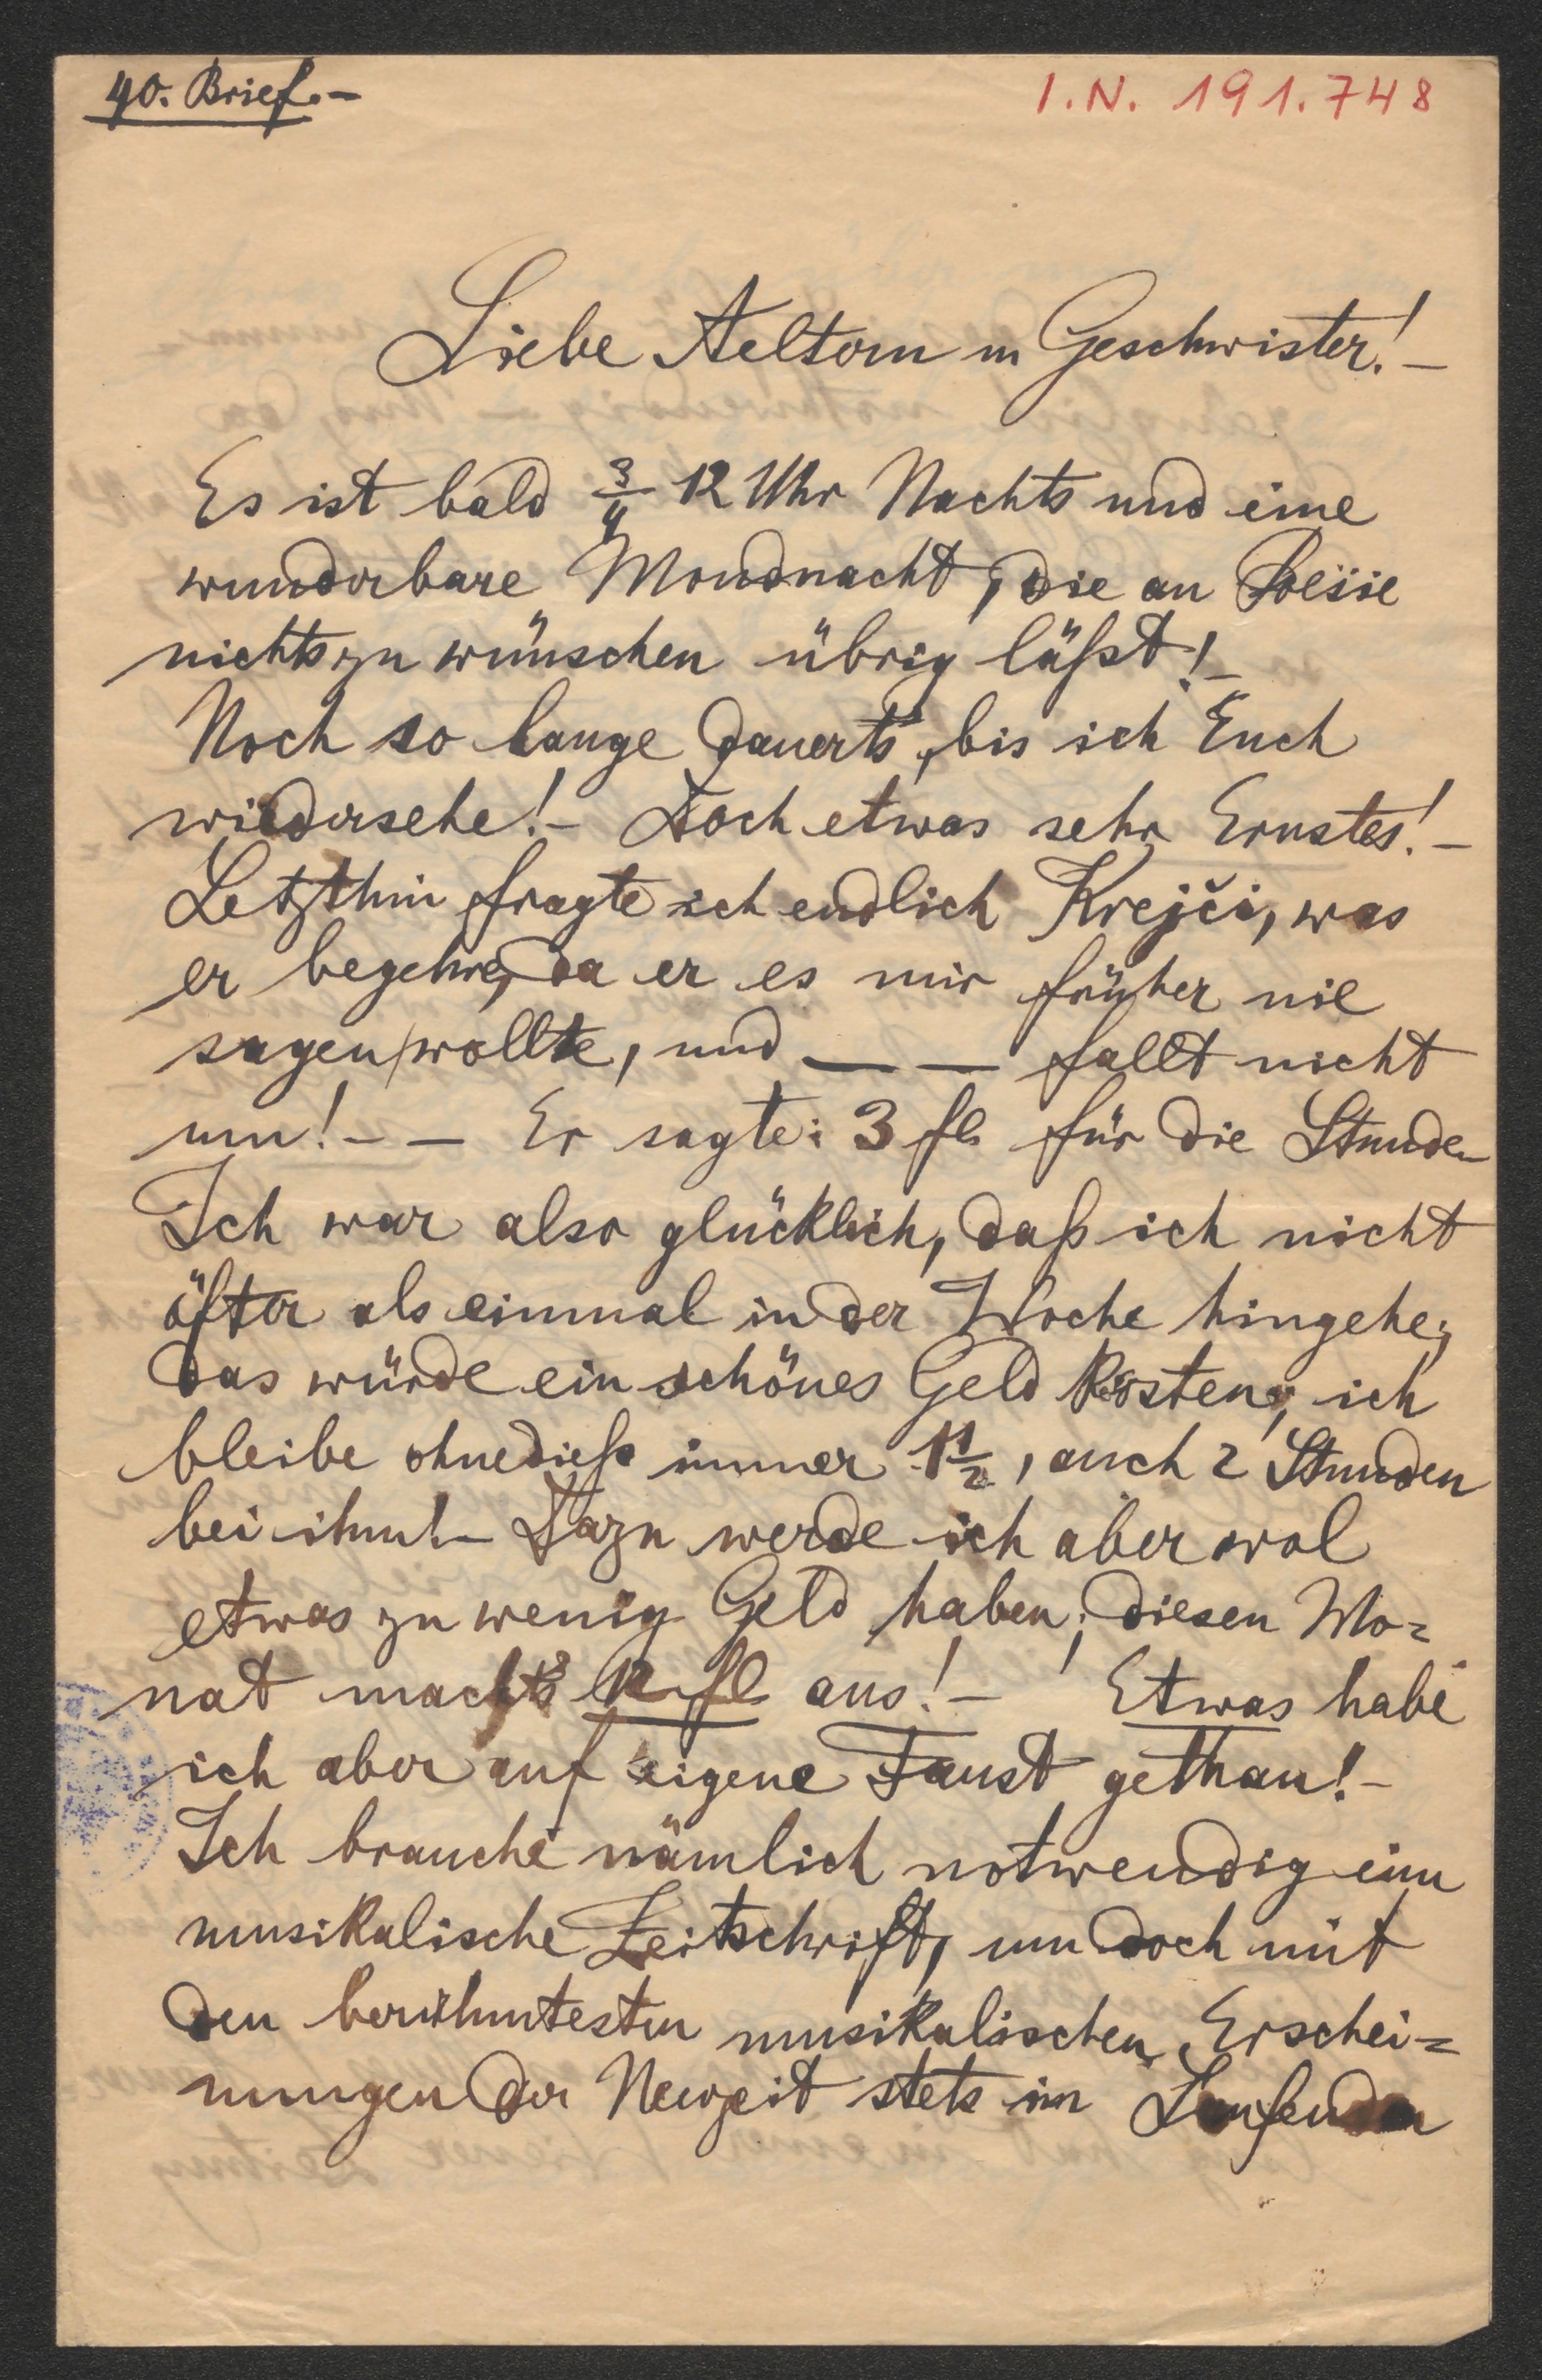 40. Brief.-
I.N. 191.748
Liebe Aeltern u Geschwister!-
Es ist bald 3/4 12 Uhr Nachts und eine
wunderbare Mondnacht, die an Poësie
nichts zu wünschen übrig läßt!-
Noch so lange dauerts, bis ich Euch
wiedersehe!- Doch etwas sehr Ernstes!-
Letzthin fragte ich endlich Krejči, was
er begehre, da er es mir früher nie
sagen wollte, und — — fallt nicht
um!- — Er sagte: 3 fl für die Stunde-
Ich war also glücklich, daß ich nicht
öfter als einmal in der Woche hingehe;
das würde ein schönes Geld kosten; ich
bleibe ohnedieß immer 1 1/2, auch 2 Stunden
bei ihm!- Dazu werde ich aber wol
etwas zu wenig Geld haben; diesen Mo=
nat machts 12 fl aus!- Etwas habe
ich aber auf eigene Faust gethan!-
Ich brauche nämlich notwendig eine
musikalische Zeitschrift, um doch mit
den berühmtesten musikalischen Erschei=
nungen der Neuzeit stets im Laufenden